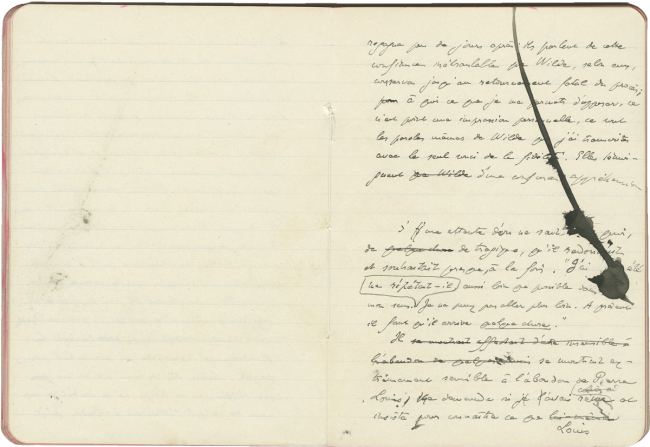 peu de jours après ils parlent de cette
confiance inébranlable que Wilde, selon eux,
conserva jusqu'au retournement fatal du procès;
à quoi ce que je me permets d'opposer, ce
n'est point une impression personnelle, ce sont
les paroles mêmes de Wilde que j'ai transcrites
avec le seul souci de la fidélité. Elles
de Wilde d'une confuse appréhension
d'une attente d'on ne sait quoi,
de quelque chose de tragique, qu'il redoutait
et souhaitait presque, à la fois. "J'ai été
me répétait-il aussi loin que possible dans
mon sens. Je ne peux pas aller plus loin. A présent
il faut qu'il arrive quelque chose."
Il se montrait affectait d'être insensible à
l'abandon de se montrait ex-
trêmement sensible à l'abandon de Pierre
Louis; me demanda si je l'avais revu et
insista pour connaître ce que
Louis